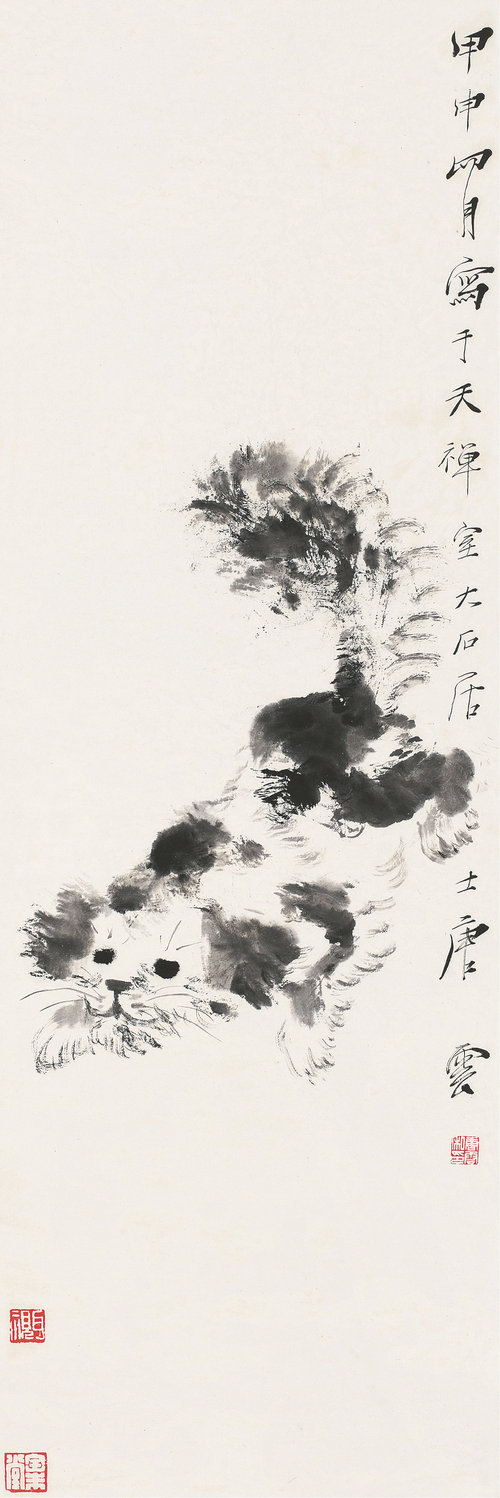 甲申四月寫于天禪室大石居士唐雲